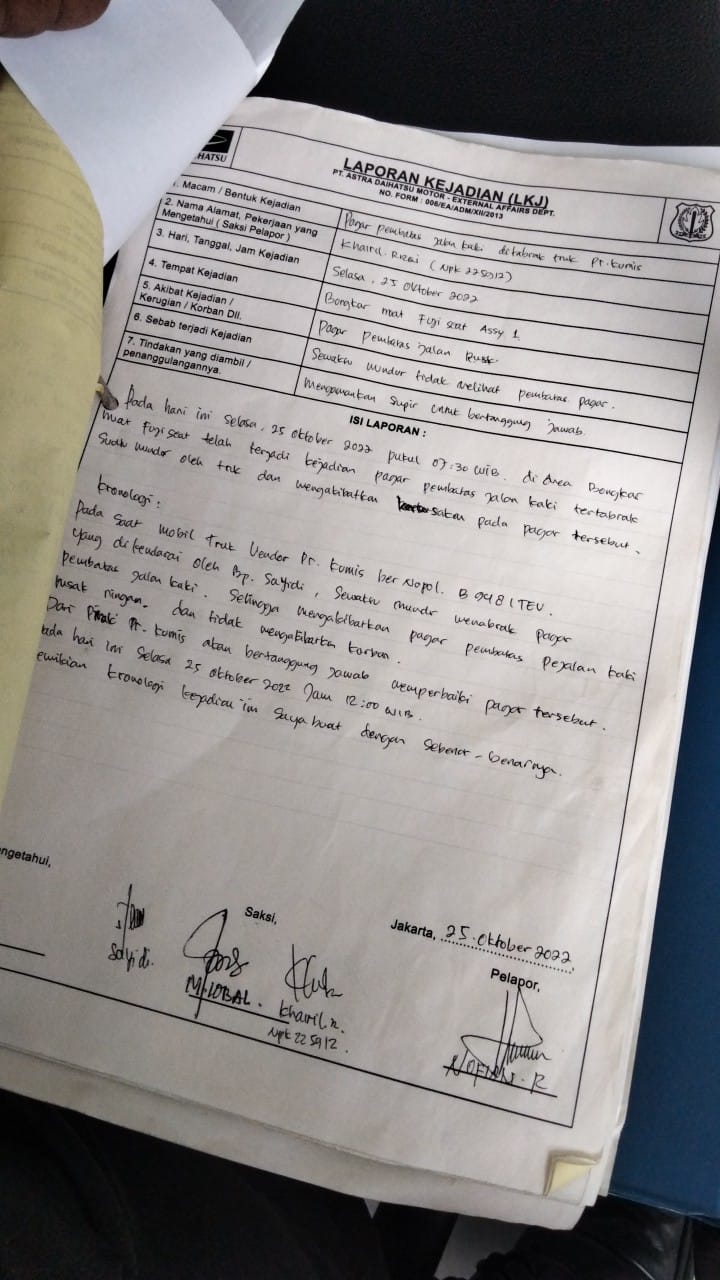 HATSU
LAPORAN KEJADIAN (LKJ)
PT. ASTRA DAIHATSU MOTOR - EXTERNAL AFFAIRS DEPT.
NO. FORM : 006/EA/ADM/XII/2013
1. Macam / Bentuk Kejadian
Pagar pembatas jalan kaki ditabrak truk PT. Kumis
2. Nama Alamat, Pekerjaan yang
Mengetahui ( Saksi Pelapor )
Khairil. Rizai (Npk 225912)
3. Hari, Tanggal, Jam Kejadian
Selasa, 25 Oktober 2022
4. Tempat Kejadian
Bongkar muat Fuji seat Assy 1.
5. Akibat Kejadian /
Kerugian / Korban Dll.
Pagar Pembatas jalan Rusak.
6. Sebab terjadi Kejadian
Sewaktu mundur tidak melihat pembatas pagar.
7. Tindakan yang diambil /
penanggulangannya.
Mengamankan Supir untuk bertanggung jawab.
ISI LAPORAN :
Pada hari ini Selasa, 25 Oktober 2022 pukul 07:30 WIB. di Area Bongkar
muat Fuji seat telah terjadi kejadian pagar pembatas jalan kaki tertabrak
mundur oleh truk dan mengakibatkan pada pagar tersebut.
Kronologi :
Pada Saat mobil Truk Vendor PT. Kumis ber Nopol. B 9481 TEU.
yang di kendarai oleh Bp. Sayidi, Sewaktu mundur menabrak pagar
pembatas jalan kaki. Sehingga mengakibatkan pagar pembatas pejalan kaki
rusak ringan. dan tidak mengakibatkan korban.
Dari Pihak PT. Kumis akan bertanggung jawab memperbaiki pagar tersebut.
ada hari ini Selasa 25 Oktober 2022 Jam 12:00 WIB.
emikian kronologi kejadian ini Saya buat dengan Sebenar-benarnya.
ngetahui,
Saksi,
Jakarta, 25. Oktober 2022
Pelapor,
Sayidi.
M. IQBAL.
Khairil.R.
Npk 225912.
NOFIAN. R